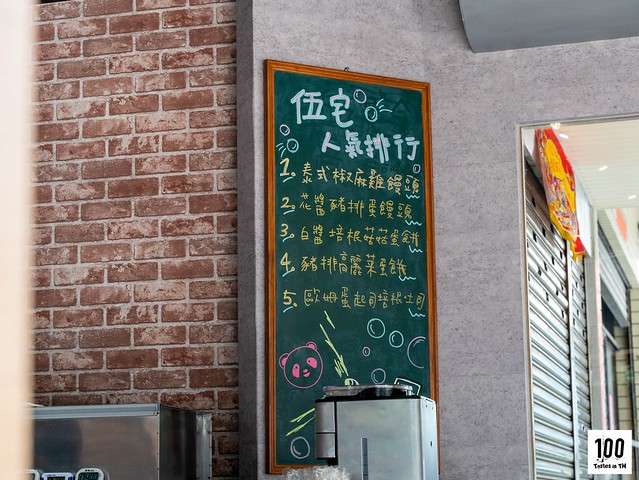 伍宅
人氣排行
1. 泰式椒麻雞饅頭
2. 花醬豬排蛋饅頭
3. 白醬培根菇菇蛋餅
4. 豬排高麗菜蛋餅
5. 歐姆蛋起司培根吐司
100
Tastes in TN